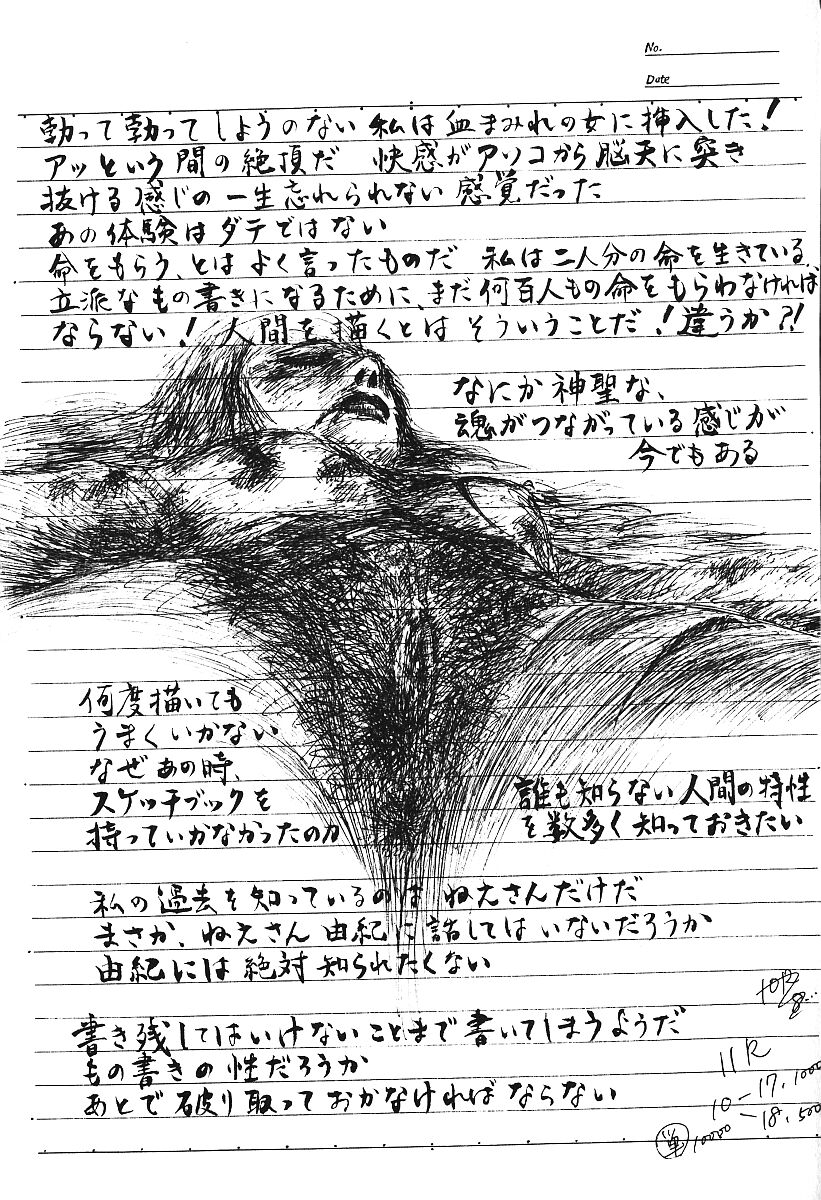 No.
Date
勃って勃ってしようのない 私は血まみれの女に挿入した!
アッという間の絶頂だ 快感がアソコから脳天に突き
抜ける感じの一生忘れられない感覚だった
あの体験はダテではない
命をもらう、とはよく言ったものだ 私は二人分の命を生きている、
立派なもの書きになるために、まだ何百人もの命をもらわなければ
ならない! 人間を描くとはそういうことだ!違うか?!
なにか神聖な、
魂がつながっている感じが
今でもある
何度描いても
うまくいかない
なぜあの時、
スケッチブックを
持っていかなかったのか
誰も知らない人間の特性
を数多く知っておきたい
私の過去を知っているのはねえさんだけだ
まさか、ねえさん由紀に話してはいないだろうか
由紀には絶対知られたくない
書き残してはいけないことまで書いてしまうようだ
もの書きの性だろうか
あとで破り取っておかなければならない
11R
10-17.1000
10000-18.500